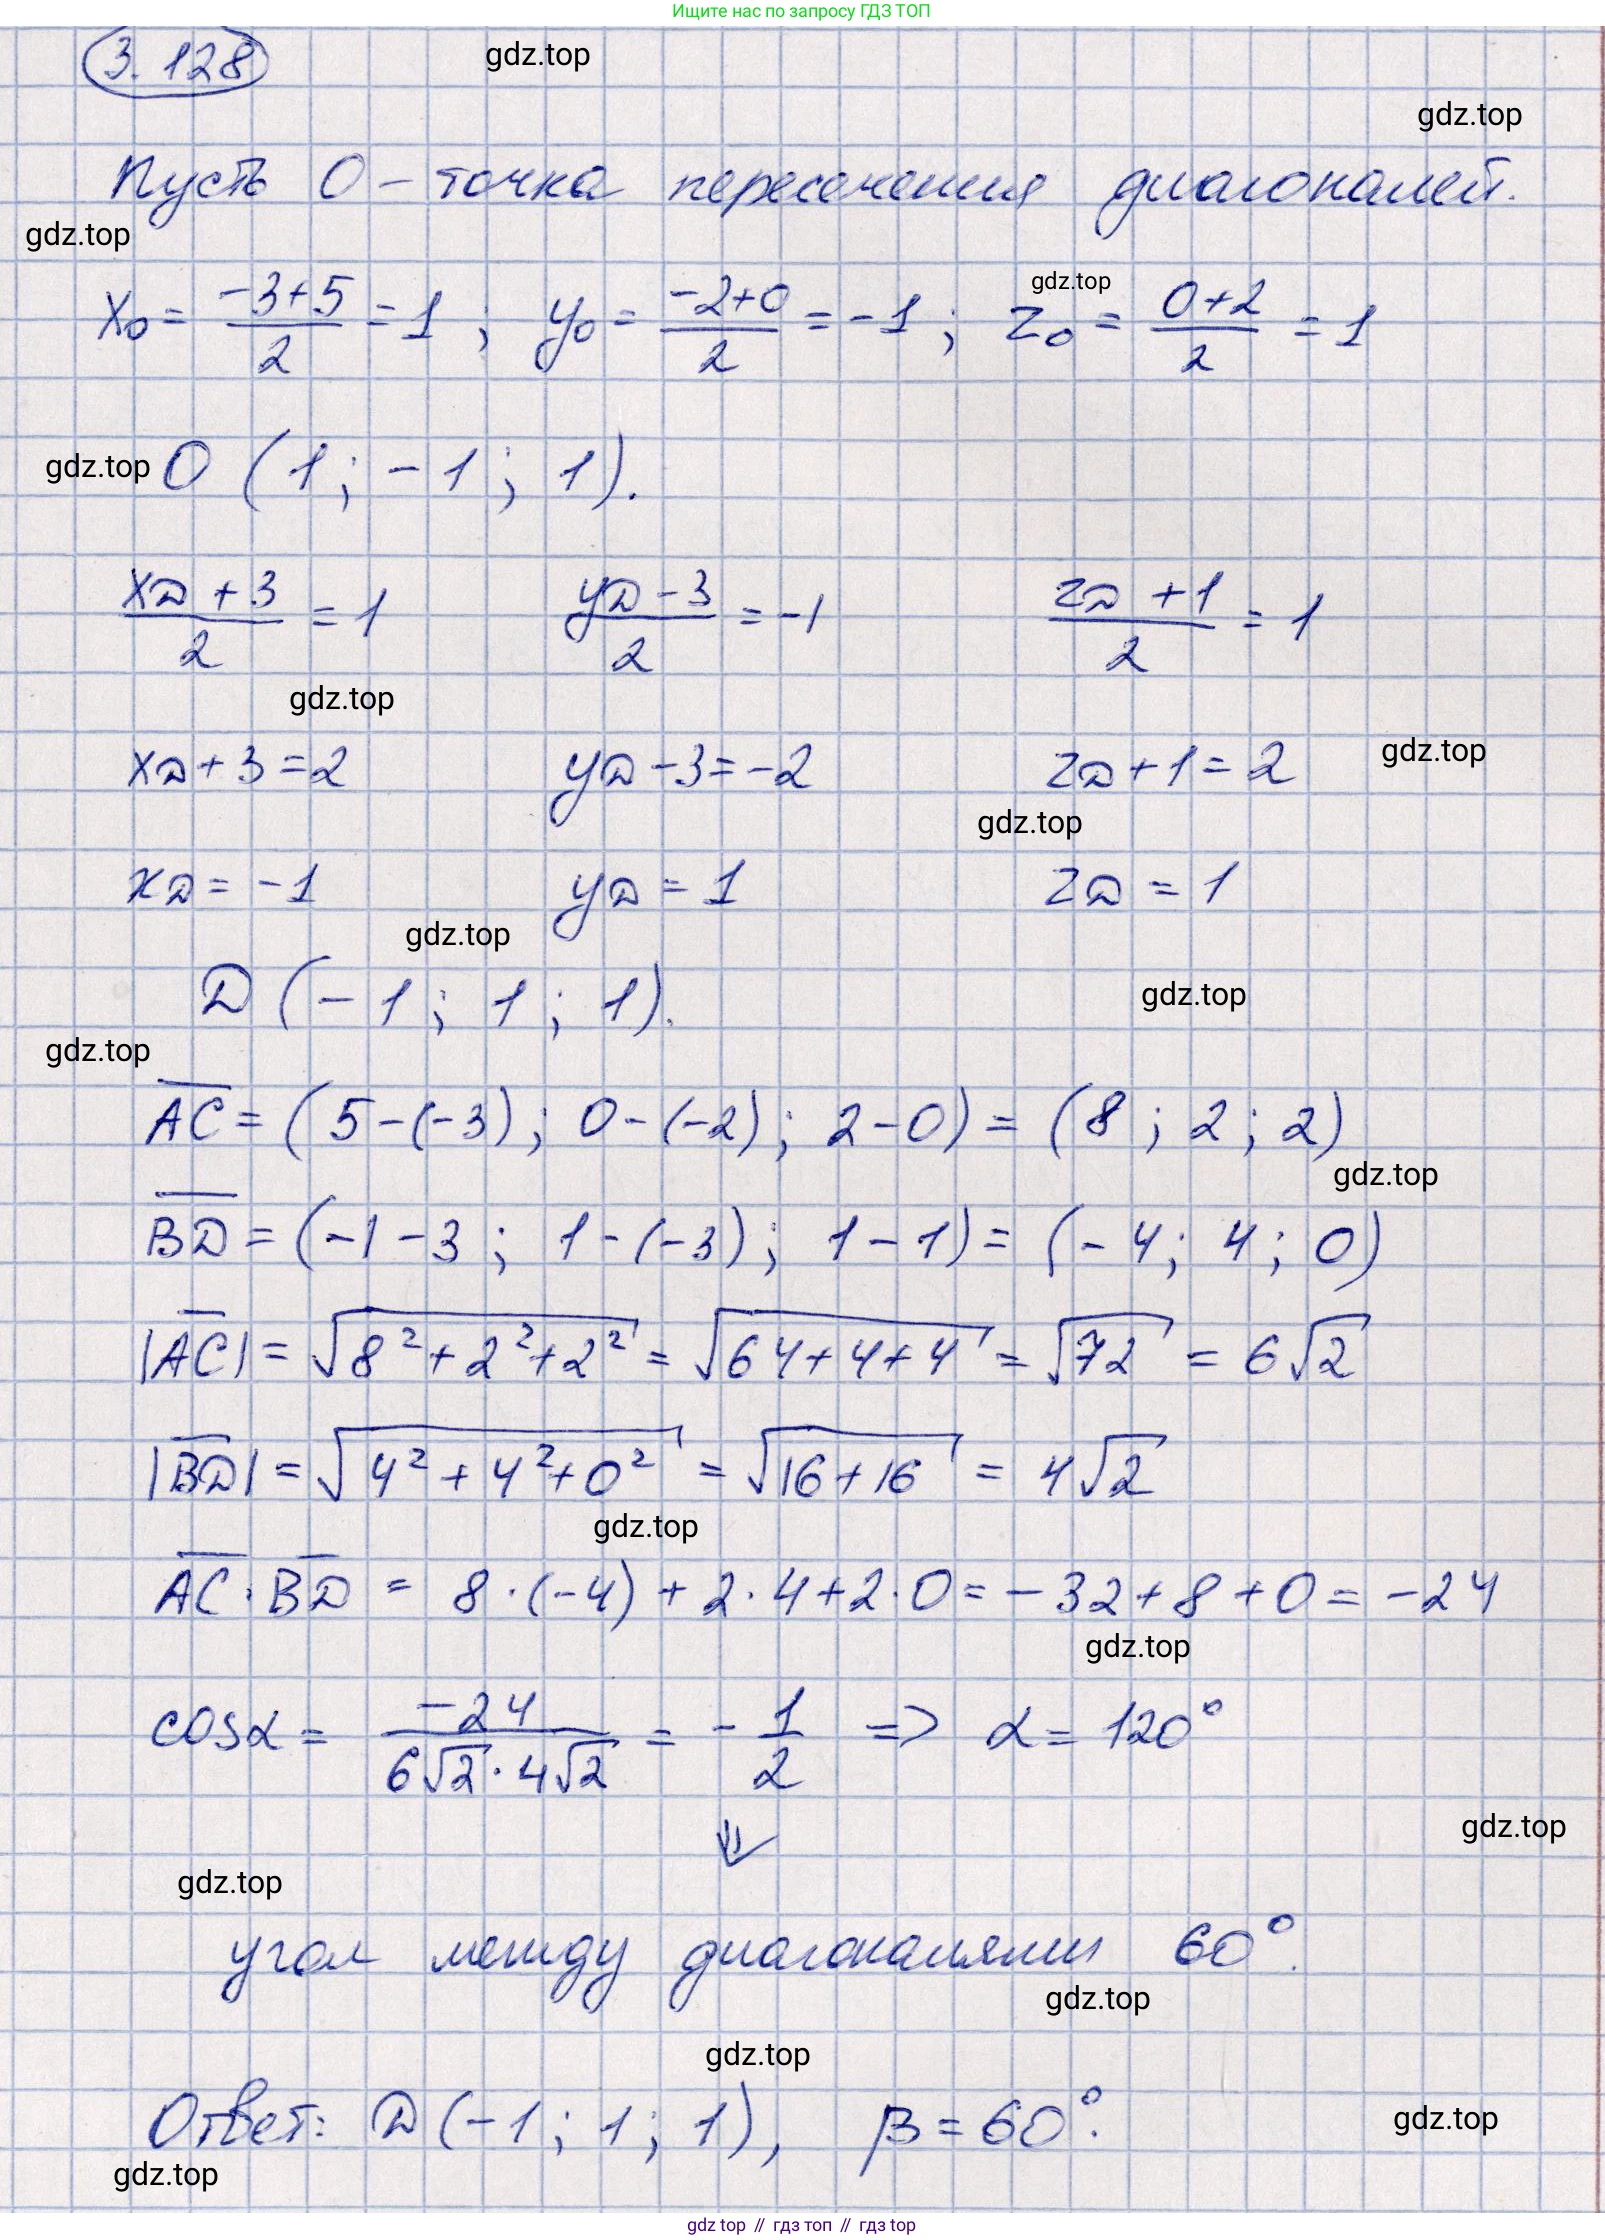 Ищите нас по запросу ГДЗ ТОП
3.128
gdz.top
gdz.top
Пусть O – точка пересечения диагоналей.
gdz.top
gdz.top
x₀ = (-3+5)/2 = 1 ; y₀ = (-2+0)/2 = -1 ; z₀ = (0+2)/2 = 1
gdz.top O (1 ; -1 ; 1).
(xD + 3)/2 = 1 (yD - 3)/2 = -1 (zD + 1)/2 = 1
gdz.top
xD + 3 = 2 yD - 3 = -2 zD + 1 = 2 gdz.top
gdz.top
xD = -1 yD = 1 zD = 1
gdz.top
D (-1 ; 1 ; 1). gdz.top
gdz.top
A̅C̅ = (5-(-3) ; 0-(-2) ; 2-0) = (8 ; 2 ; 2)
gdz.top
B̅D̅ = (-1-3 ; 1-(-3) ; 1-1) = (-4 ; 4 ; 0)
|A̅C̅| = √(8²+2²+2²) = √(64+4+4) = √72 = 6√2
|B̅D̅| = √(4²+4²+0²) = √(16+16) = 4√2
gdz.top
A̅C̅ · B̅D̅ = 8·(-4) + 2·4 + 2·0 = -32 + 8 + 0 = -24
gdz.top
cosα = -24/(6√2 · 4√2) = -1/2 => α = 120°
⇓
gdz.top
gdz.top
угол между диагоналями 60°.
gdz.top
gdz.top
Ответ: D (-1 ; 1 ; 1), β = 60°.
gdz.top
gdz.top
gdz top // гдз топ // гдз top